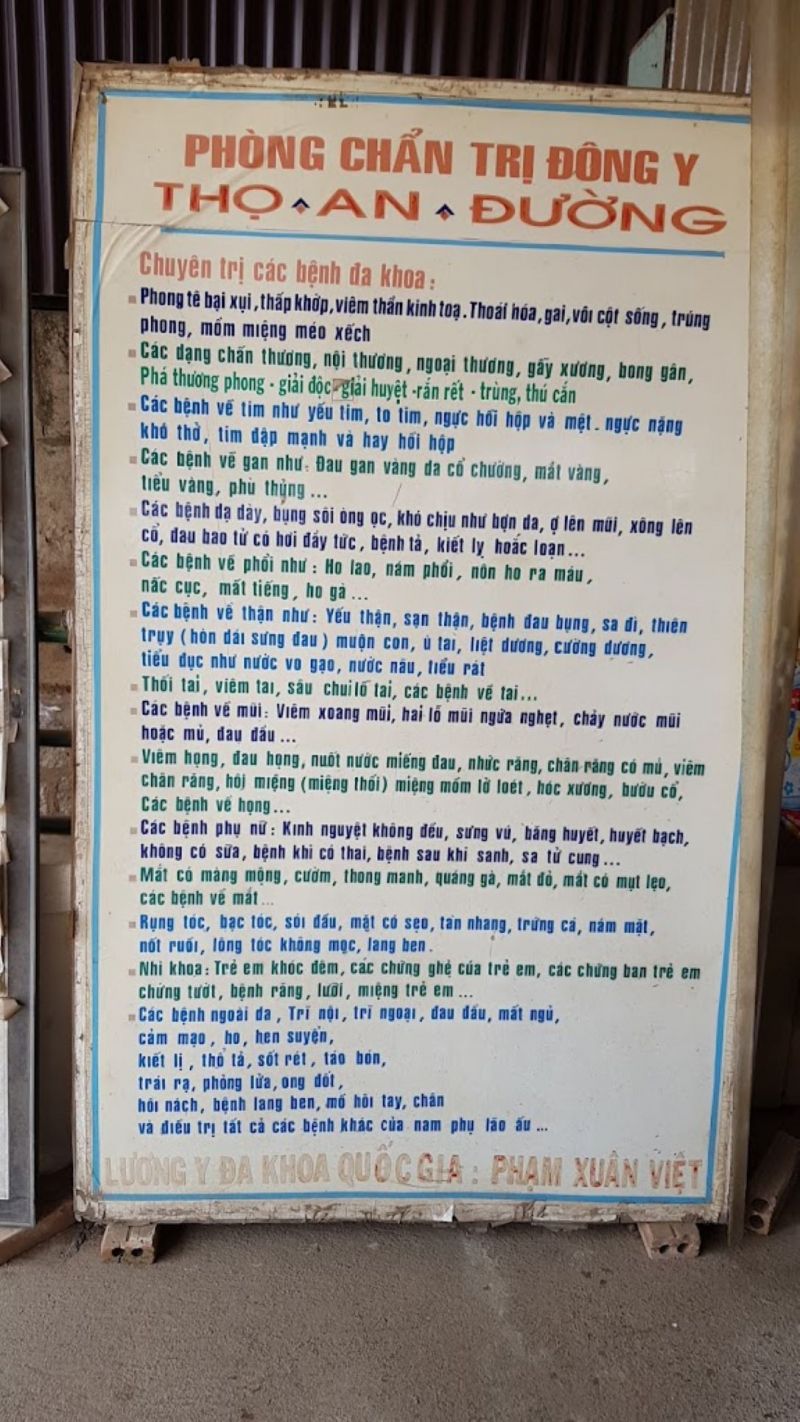 PHÒNG CHẨN TRỊ ĐÔNG Y
THỌ AN ĐƯỜNG
Chuyên trị các bệnh đa khoa:
Phong tê bại xụi, thấp khớp, viêm thần kinh toạ. Thoái hóa, gai, vôi cột sống, trúng
phong, mồm miệng méo xếch
Các dạng chấn thương, nội thương, ngoại thương, gãy xương, bong gân,
Phá thương phong - giải độc - giải huyệt - rắn rết - trùng, thú cắn
Các bệnh về tim như yếu tim, to tim, ngực hồi hộp và mệt. ngực nặng
khó thở, tim đập mạnh và hay hồi hộp
Các bệnh về gan như: Đau gan vàng da cổ chướng, mắt vàng,
tiểu vàng, phù thủng ...
Các bệnh dạ dày, bụng sôi òng ọc, khó chịu như bợn da, ợ lên mũi, xông lên
cổ, đau bao tử có hơi đầy tức, bệnh tả, kiết lỵ hoắc loạn...
Các bệnh về phổi như: Ho lao, nám phổi, nôn ho ra máu,
nấc cục, mất tiếng, ho gà ...
Các bệnh về thận như: Yếu thận, sạn thận, bệnh đau bụng, sa đì, thiên
trụy (hòn dái sưng đau) muộn con, ù tai, liệt dương, cường dương,
tiểu đục như nước vo gạo, nước nâu, tiểu rát
Thối tai, viêm tai, sâu chui lỗ tai, các bệnh về tai...
Các bệnh về mũi: Viêm xoang mũi, hai lỗ mũi ngứa nghẹt, chảy nước mũi
hoặc mủ, đau đầu ...
Viêm họng, đau họng, nuốt nước miếng đau, nhức răng, chân răng có mủ, viêm
chân răng, hôi miệng (miệng thối) miệng mồm lở loét, hóc xương, bướu cổ,
Các bệnh về họng...
Các bệnh phụ nữ: Kinh nguyệt không đều, sưng vú, băng huyết, huyết bạch,
không có sữa, bệnh khi có thai, bệnh sau khi sanh, sa tử cung ...
Mắt có màng mộng, cườm, thong manh, quáng gà, mắt đỏ, mắt có mụt lẹo,
các bệnh về mắt ...
Rụng tóc, bạc tóc, sói đầu, mặt có sẹo, tàn nhang, trứng cá, nám mặt,
nốt ruồi, lông tóc không mọc, lang ben.
Nhi khoa: Trẻ em khóc đêm, các chứng ghẻ của trẻ em, các chứng ban trẻ em
chứng tướt, bệnh răng, lưỡi, miệng trẻ em ...
Các bệnh ngoài da, Trĩ nội, trĩ ngoại, đau đầu, mất ngủ,
cảm mạo, ho, hen suyễn,
kiết lị, thổ tả, sốt rét, táo bón,
trái rạ, phỏng lửa, ong đốt,
hôi nách, bệnh lang ben, mồ hôi tay, chân
và điều trị tất cả các bệnh khác của nam phụ lão ấu ...
LƯƠNG Y ĐA KHOA QUỐC GIA : PHẠM XUÂN VIỆT